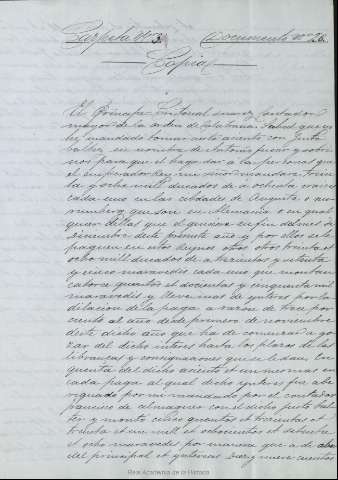 Carpeta nº 3. Documento nº 26
Copia
El Principe = Cristoval suarez contador
mayor de la orden de Calatrava Sabed que yo
he mandado tomar cierto asiento con Justo
balter en nombre de Antonio fucar y sobri
nos para que el haga dar a la persona que
el emperador Rey mi señor mandare Trein
ta y ocho mill ducados de a ochenta craices
cada uno en las cibdades de Augusta o
nuremberg que son en Alemania o en qual
quier dellas que el quisiere en fin del mes de
Diziembre deste presente año y por ellos se le
paguen en estos Reynos otros treinta et
ocho mill ducados de a trezientos y setenta
y cinco maravedis cada uno que montan
catorce quentos et docientas y cinquenta mil
maravedis y Revenimos de ynteres por la
dilacion de la paga a razon de trece por
ciento al año desde primero de noviembre
deste dicho año que ha de comenzar a go
zar del dicho interes hasta los plazos de las
libranças y consignaciones que se le dan En
quenta del dicho asiento et un mes mas en
cada paga el qual dicho ynteres fue abe
riguado por mi mandado por el contador
francisco de almaguer con el dicho justo bal
ter y monto cinco quentos et trezientas et
treinta et un mill et ochocientas et setenta
et ocho maravedis por manera que a de aber
del principal et yntereses diez y nueve cuentos
Real Academia de la Historia